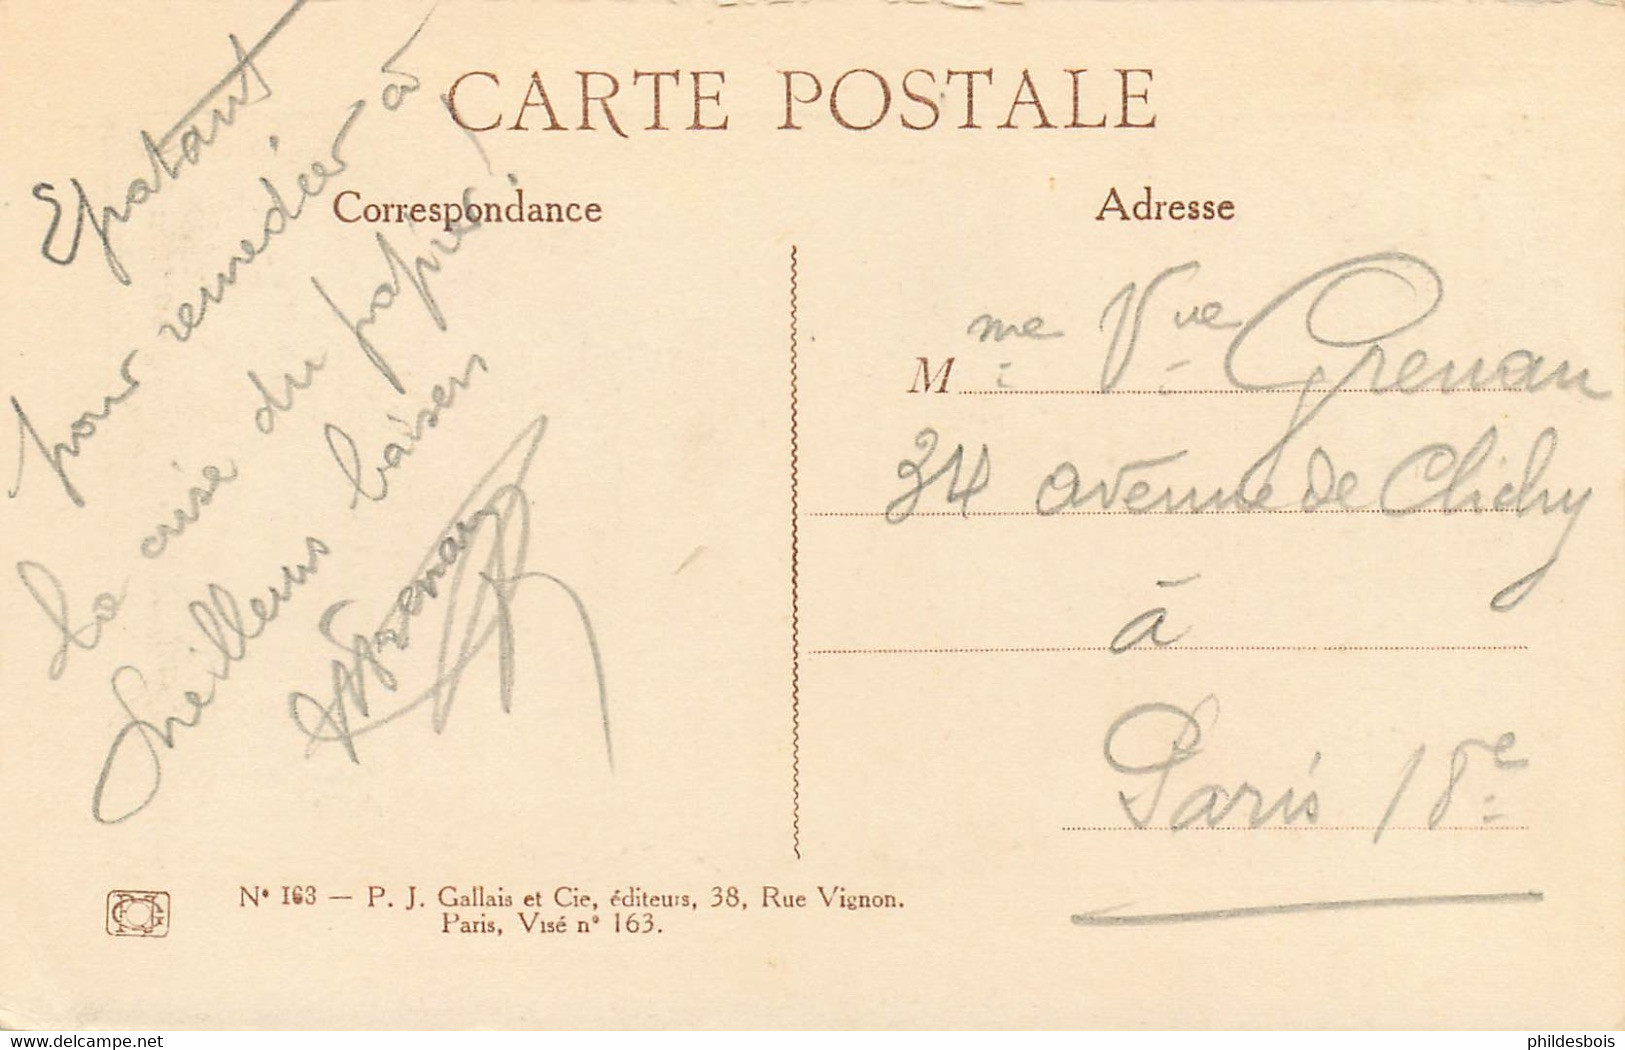 CARTE POSTALE
Correspondance
Epatant
pour remedier à
la crise du papier !
Meilleurs baisers
Grenau
Adresse
M me Vve Grenau
34 avenue de Clichy
à
Paris 18e
N° 163 — P. J. Gallais et Cie, éditeurs, 38, Rue Vignon.
Paris, Visé n° 163.
www.delcampe.net
phildesbois